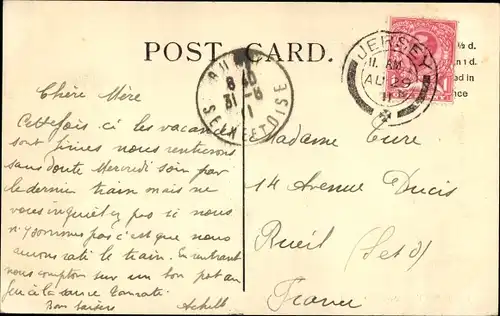 POST CARD.
JERSEY
11. AM
AU 29
11
½ d.
and 1 d.
ed in
ance
RUEIL
8 40
31 -8
11
SEINE ET OISE
Chère Mère
Cette fois ci les vacances
sont finies nous rentrerons
sans doute Mercredi soir par
le dernier train mais ne
vous inquiétez pas si nous
n'y sommes pas c'est que nous
aurons raté le train. En rentrant
nous comptons sur un bon pot au
feu à la sauce tomate
Bon baisers Achille
Madame Cure
14 Avenue Ducis
Rueil (S et O)
France